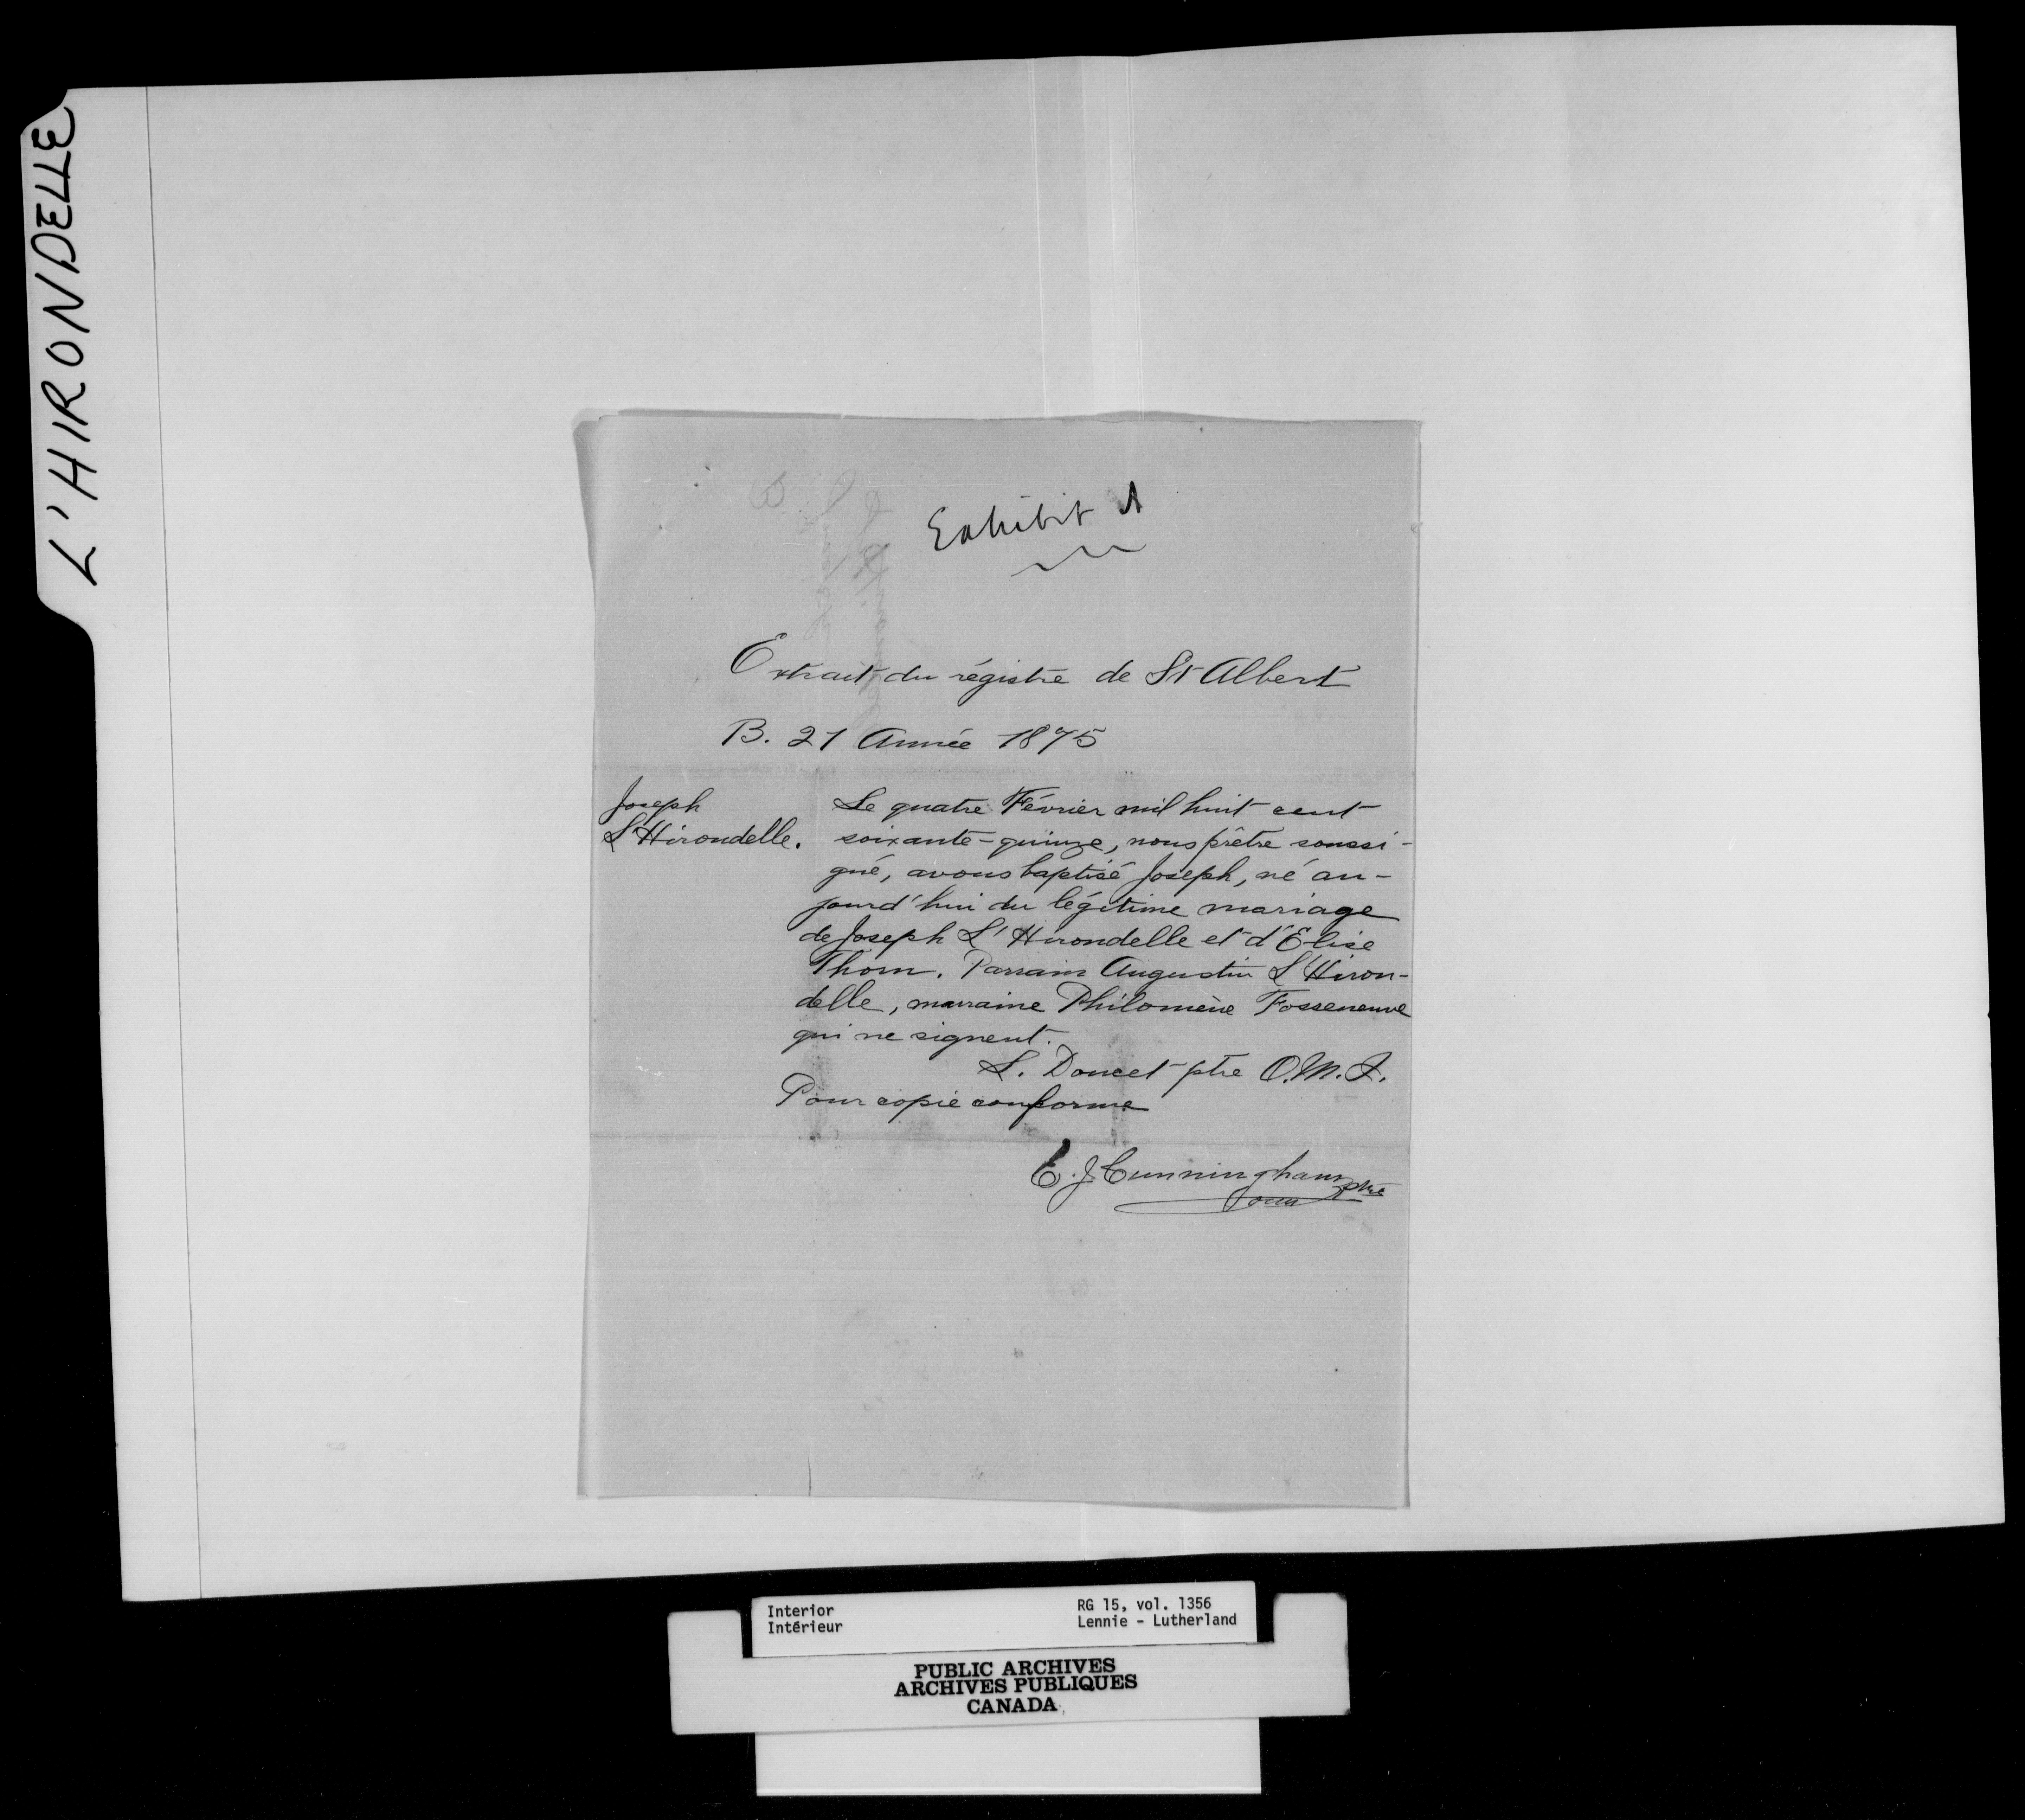 L'HIRONDELLE
Exhibit A
Extrait du régistre de St Albert
B. 21 Année 1875
Joseph
L'Hirondelle.
Le quatre Février mil huit cent
soixante-quinze, nous prêtre soussi-
gné, avons baptisé Joseph, né au-
jourd'hui du légitime mariage
de Joseph L'Hirondelle et d'Elise
Thorn. Parrain Augustin L'Hiron-
delle, marraine Philomène Fosseneuve
qui ne signent.
L. Doucet ptre O.M.I.
Pour copie conforme
E. J. Cunningham ptre
omi
Interior
Intérieur
RG 15, vol. 1356
Lennie - Lutherland
PUBLIC ARCHIVES
ARCHIVES PUBLIQUES
CANADA